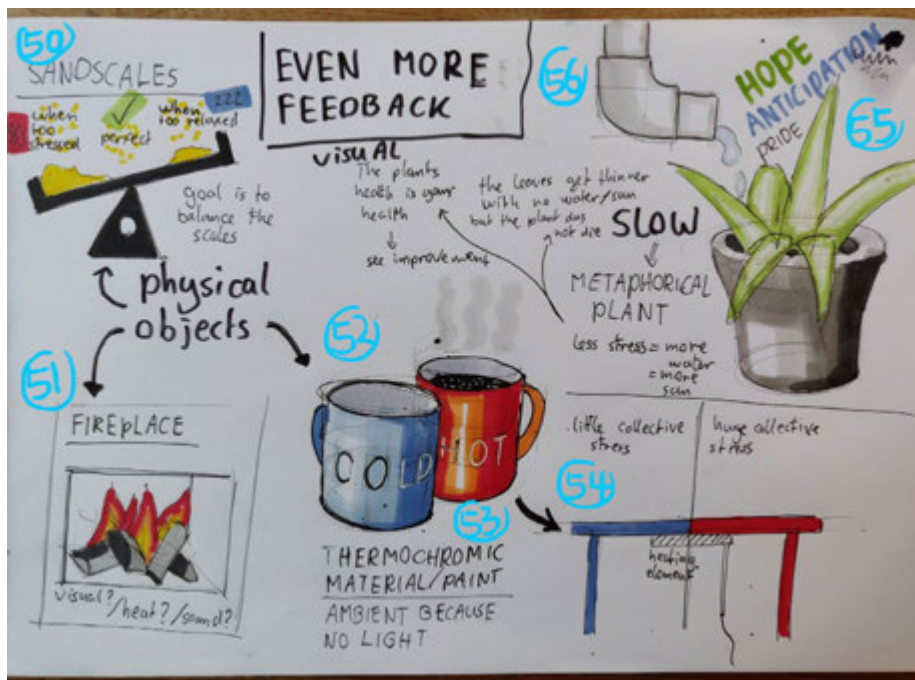 50
SANDSCALES
when too stressed
perfect
when too relaxed
ZZZ
goal is to
balance the
scales
physical
objects
EVEN MORE
FEEDBACK
visual
The plants
health is your
health
see improvement
the leaves get thinner
with no water/sun
but the plant does
not die
56
HOPE
ANTICIPATION
PRIDE
55
SLOW
METAPHORICAL
PLANT
less stress = more
water
= more
sun
51
FIREPLACE
visual?/heat?/sound?
52
COLD
HOT
53
THERMOCHROMIC
MATERIAL/PAINT
AMBIENT BECAUSE
NO LIGHT
little collective
stress
huge collective
stress
54
heating
element